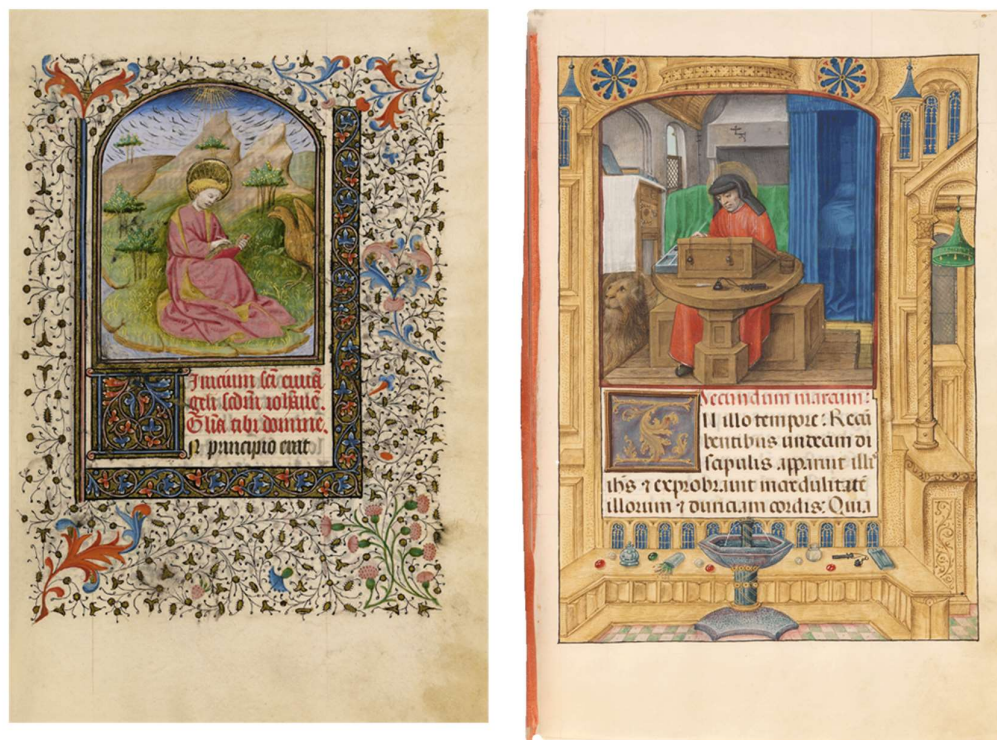 Inicium sc̄i euuā
geli scdm̄ iohāne.
Gl̄ia tibi domine.
N principio erat
Secundum marcum:
N illo tempore: Recū
bentibus undecim di
scipulis apparuit illi
ihs ⁊ exprobrauit incredulitatē
illorum ⁊ duriciam cordis: Quia